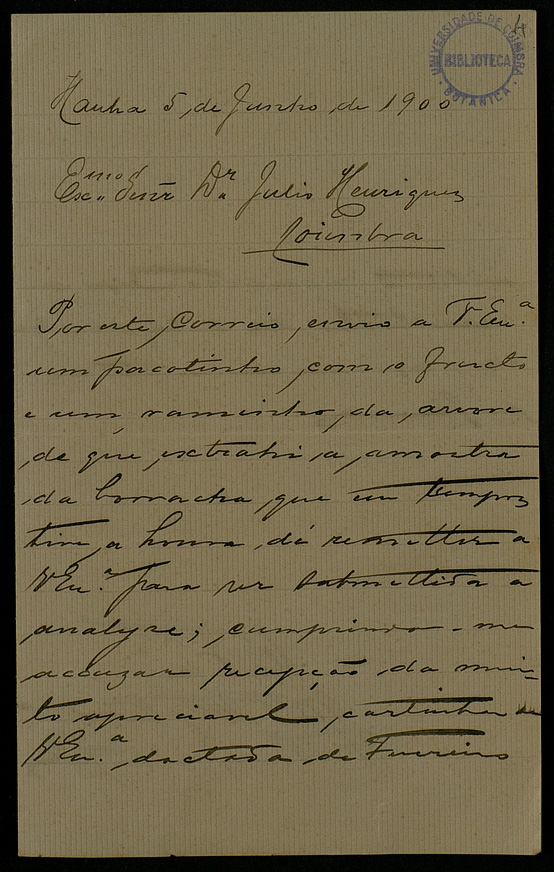 4
UNIVERSIDADE DE COIMBRA
BIBLIOTECA
BOTANICA
5 de Junho de 1900
Exmo Senr Dr. Julio Henriques
Coimbra
Por este Correio, envio a V. Exa.
um pacotinho, com o fructo
e um raminho, da arvore
de que extrahi a amostra
da borracha, que em tempos
tive a honra de remetter a
V Exa. para ser submettida a
analyse; cumprindo-me
accuzar recepção da mui-
to apreciavel cartinha de
V Exa. dactada de Fevereiro